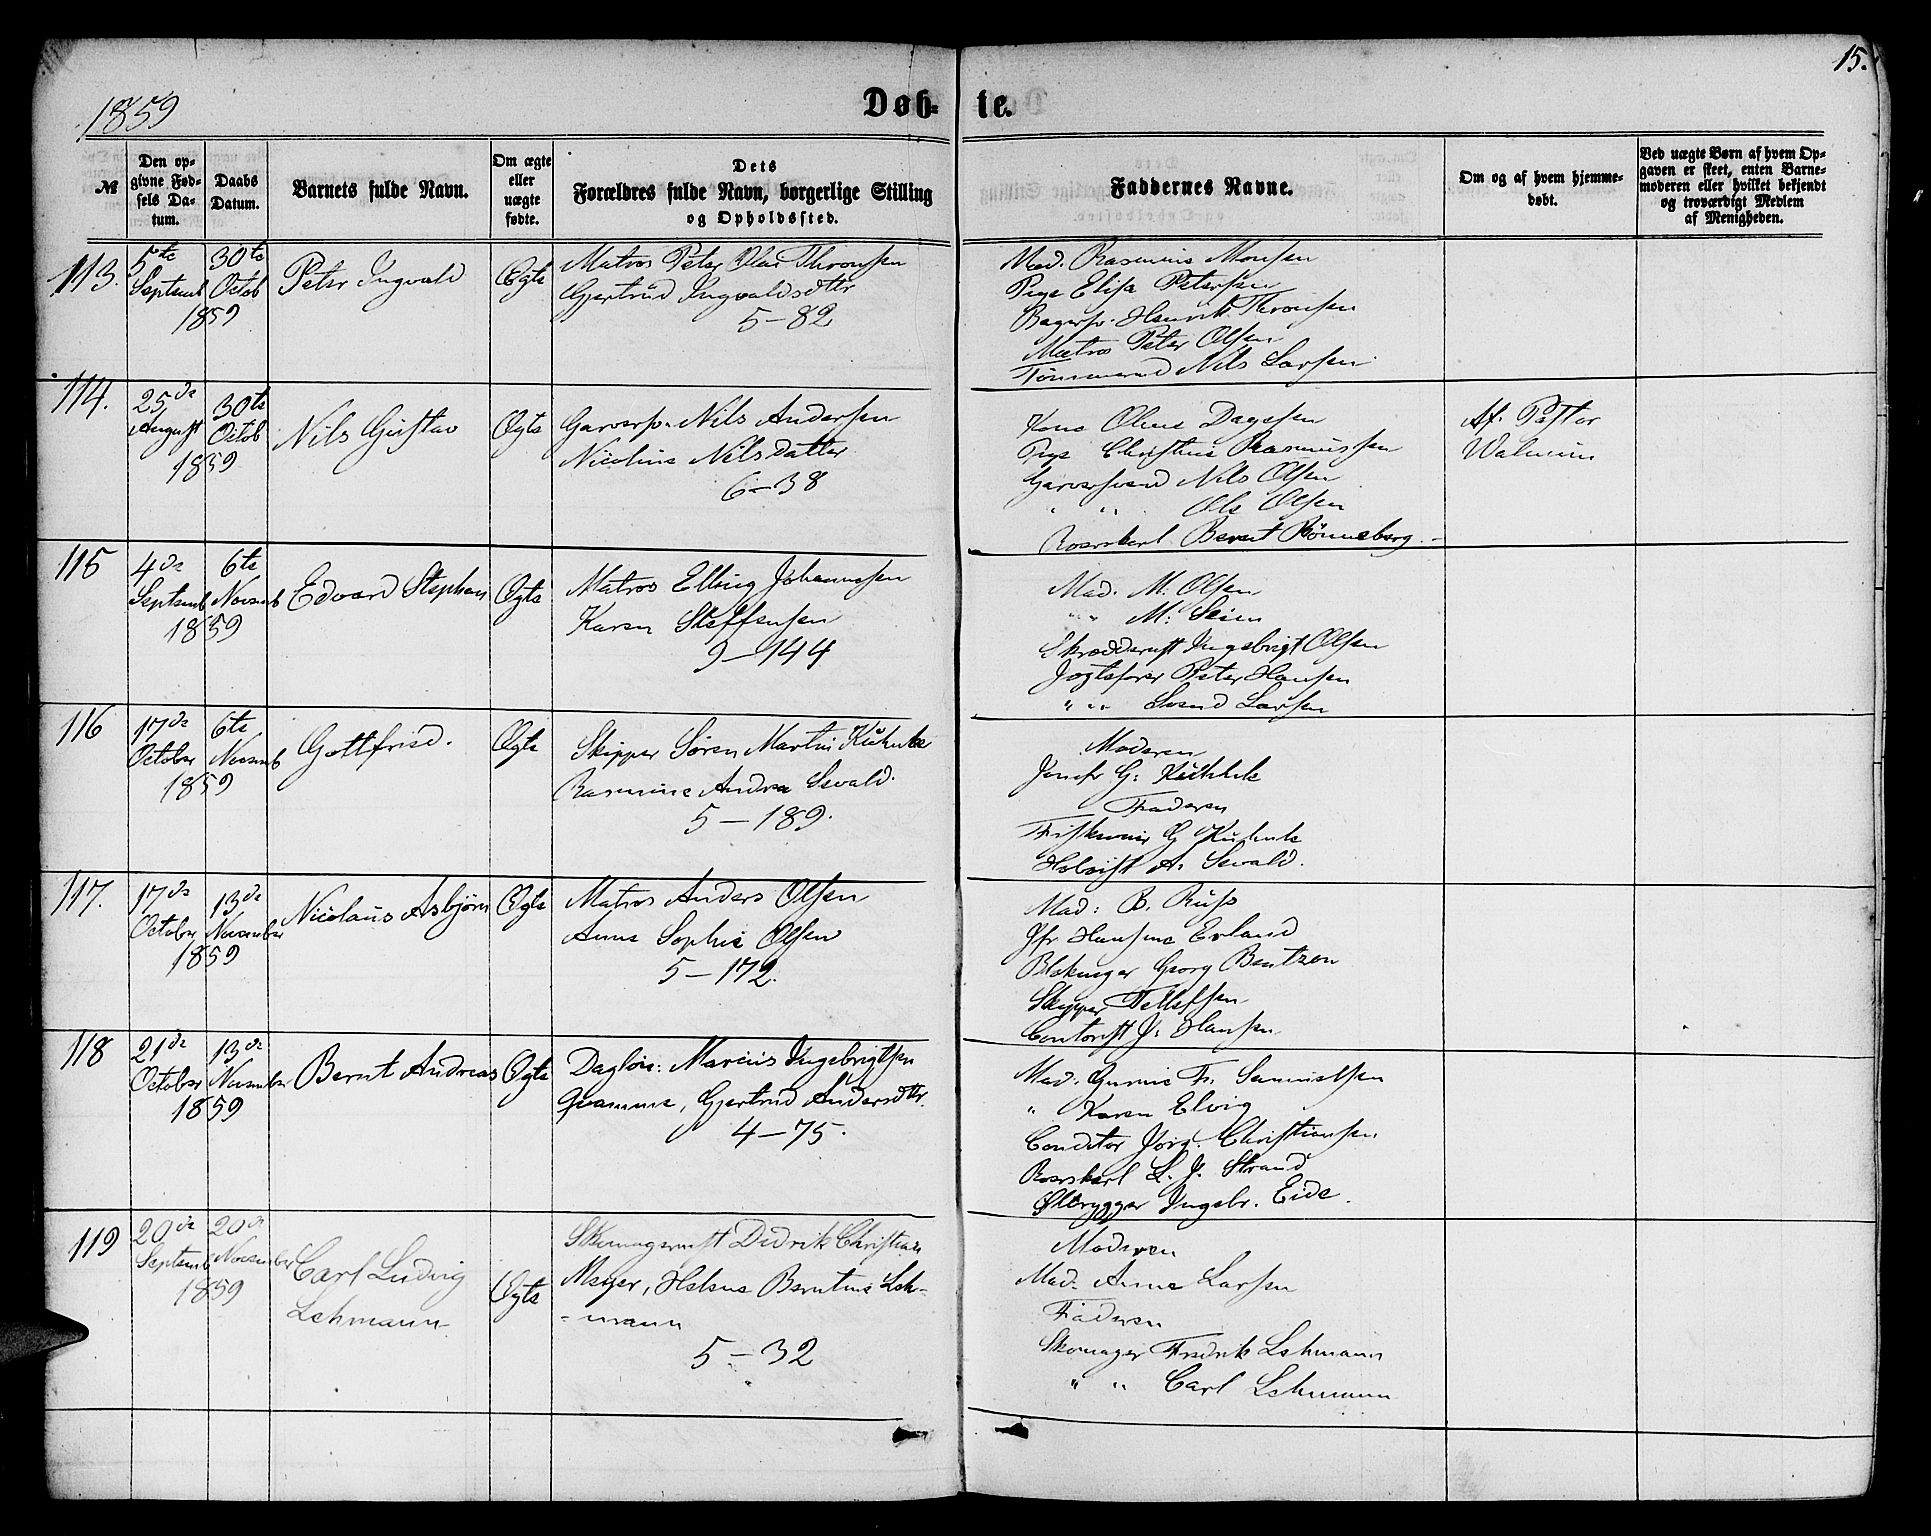 1859
Døb-
te.
15.
№
Den op-
givne Fød-
sels Da-
tum.
Daabs
Datum.
Barnets fulde Navn.
Om ægte
eller
uægte
fødte.
Dets
Forældres fulde Navn, borgerlige Stilling
og Opholdssted.
Faddernes Navne.
Om og af hvem hjemme-
døbt.
Ved uægte Børn af hvem Op-
gaven er skeet, enten Barne-
moderen eller hvilket bekjendt
og troværdigt Medlem
af Menigheden.
113.
5te
Septemb
30te
Octob
1859
Peter Ingvald
Ægte
Matros Peter Olai Thronsen
Gjertrud Ingvaldsdttr
5-82
Mad. Rasmine Monsen
Pige Elisa Petersen
Bagersv. Henrik Thronsen
Matros Peter Olsen
Tømmermd Nils Larsen
114.
25de
August
30te
Octob
1859
Nils Gustav
Ægte
Garversv. Nils Andersen
Nicoline Nilsdatter
6-38
Kone Oline Dagssen
Pige Christine Rasmussen
Garversvend Nils Olsen
" " Ole Olsen
Roerskarl Bernt Rønneberg.
Af. Pastor
115
4de
Septemb
6te
Novemb
1859
Edvard Stephan
Ægte
Matros Elling Johannesen
Karen Steffensen
9-144
Mad. M. Olsen
" " M. Seim
Skræddermst Ingebrigt Olsen
Jagtefører Peter Hansen
" " Svend Larsen
116
17de
October
6te
Novemb
1859
Gottfried.
Ægte
Skipper Søren Martin Kuhnle
Rasmine Andrea Sevald.
5-189.
Moderen
Jomfr G. Kuhnle
Faderen
G Kuhnle
A. Sevald.
117.
17de
October
13de
November
1859
Nicolaus Asbjørn
Ægte
Matros Anders Olsen
Anne Sophie Olsen
5-172.
Mad: B. Russ
Jfr Hansine Erland
Georg Bentzen
Skipper Tellefsen
Contorist J. Hansen
118
21de
October
13de
November
1859
Bernt Andreas
Ægte
Dagløn: Marius Ingebrigtsen
Qvamme, Gjertrud Andersdttr.
4-75.
Mad. Gurine Fr. Samuelsen
" Karen Elvig
Conditor Jørg. Christiansen
Roerskarl L. J. Strand
Ølbrygger Ingebr. Eide.
119
20de
Septemb
20de
November
1859
Carl Ludvig
Lehmann
Ægte
Skomagermst Didrik Christian
Meyer, Helene Berntine Leh-
-mann
5-32
Moderen
Mad. Anne Larsen
Faderen
Skomager Fredrik Lehmann
" " Carl Lehmann